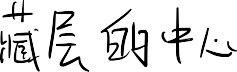 藏层的中心